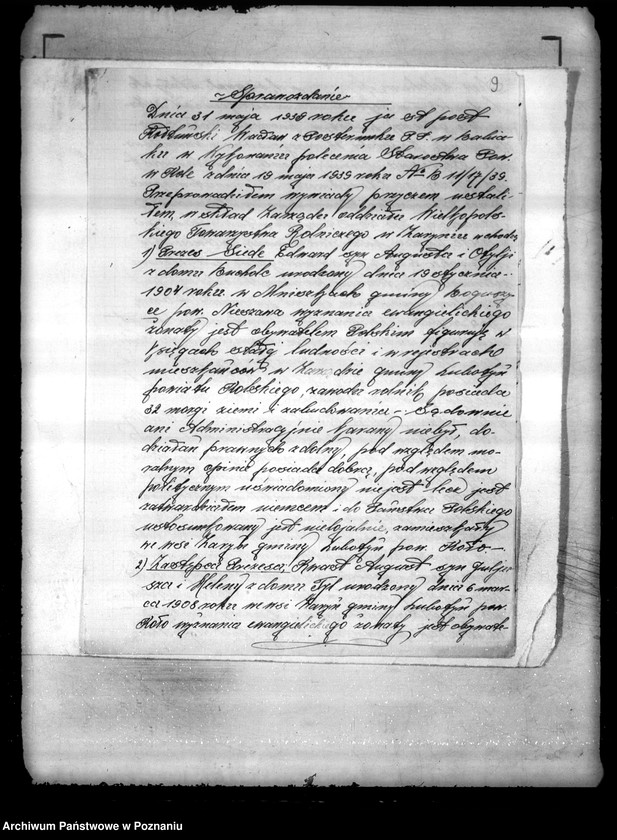 9
Sprawozdanie
Dnia 31 maja 1939 roku ja st. post.
z Posterunku P.P. w Babia-
ku w Wykonaniu polecenia Starostwa Pow.
w Kole z dnia 19 maja 1939 roku № B 11/17/39.
Przeprowadziłem wywiady przyczem ustali-
łem, w skład Zarządu oddziału Wielkopols-
kiego Towarzystwa Rolniczego w wchodzą
1) Prezes Siede Edward syn Augusta i Otylji
z domu urodzony dnia 19 stycznia
1904 roku w gminy
pow. Nieszawa wyznania ewangielickiego
żonaty jest obywatelem Polskim figuruje w
księgach stałej ludności i w rejestrach
mieszkańców w Zarządzie gminy Lubotyń
powiatu Kolskiego, zawodu rolnik posiada
32 morgi ziemi i zabudowania - Sądownie
ani Administracyjnie karany niebył, do
działań prawnych zdolny, pod względem mo-
ralnym opinię posiada dobrą, pod względem
politycznym uświadomiony nie jest lecz jest
zatwardziałem niemcem i do Państwa Polskiego
ustosunkowany jest nielojalnie, zamieszkały
we wsi gminy Lubotyń pow. Koło -
2) Zastępca Prezesa, August syn Julju-
sza i Heleny z domu Tyl urodzony dnia 6 mar-
ca 1908 roku we wsi gminy Lubotyń pow.
Koło wyznania ewangielickiego żonaty jest obywate-
Archiwum Państwowe w Poznaniu